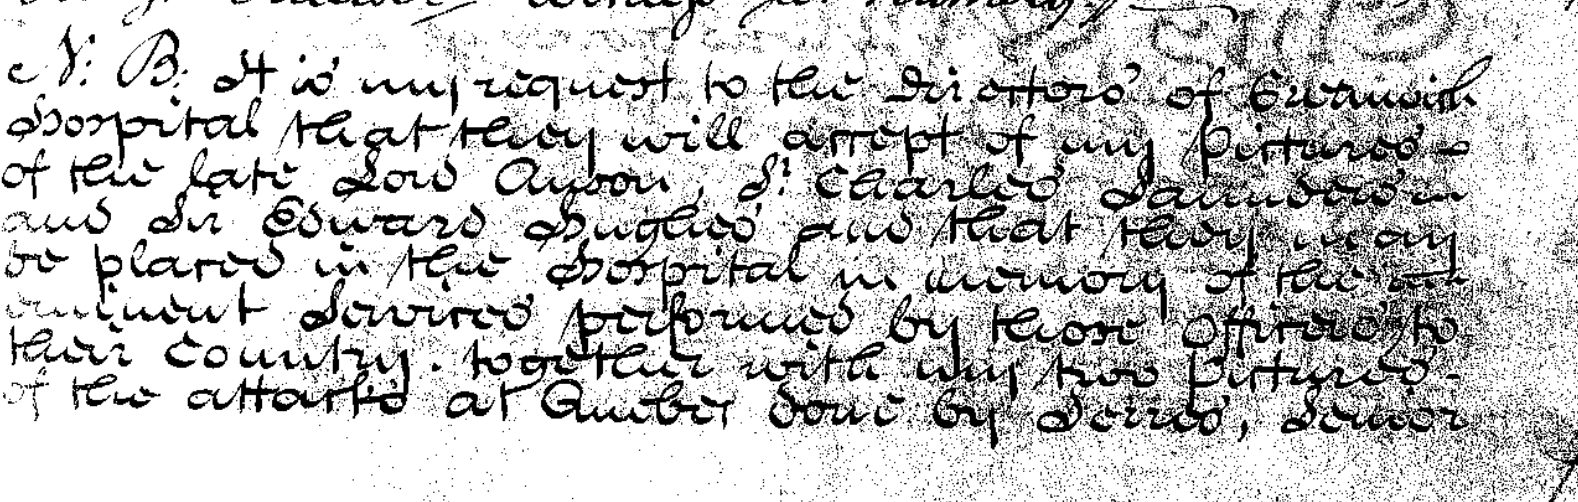 N: B: It is my request to the Directors of Greenwich
Hospital that they will accept of my Pictures
of the late Lord Anson, Sr. Charles Saunders
and Sir Edward Hughes and that they may
be placed in the Hospital in memory of the
eminent Services performed by those Officers to
their Country. together with my two Pictures
of the attacks at Quebec done by Serres, Senior